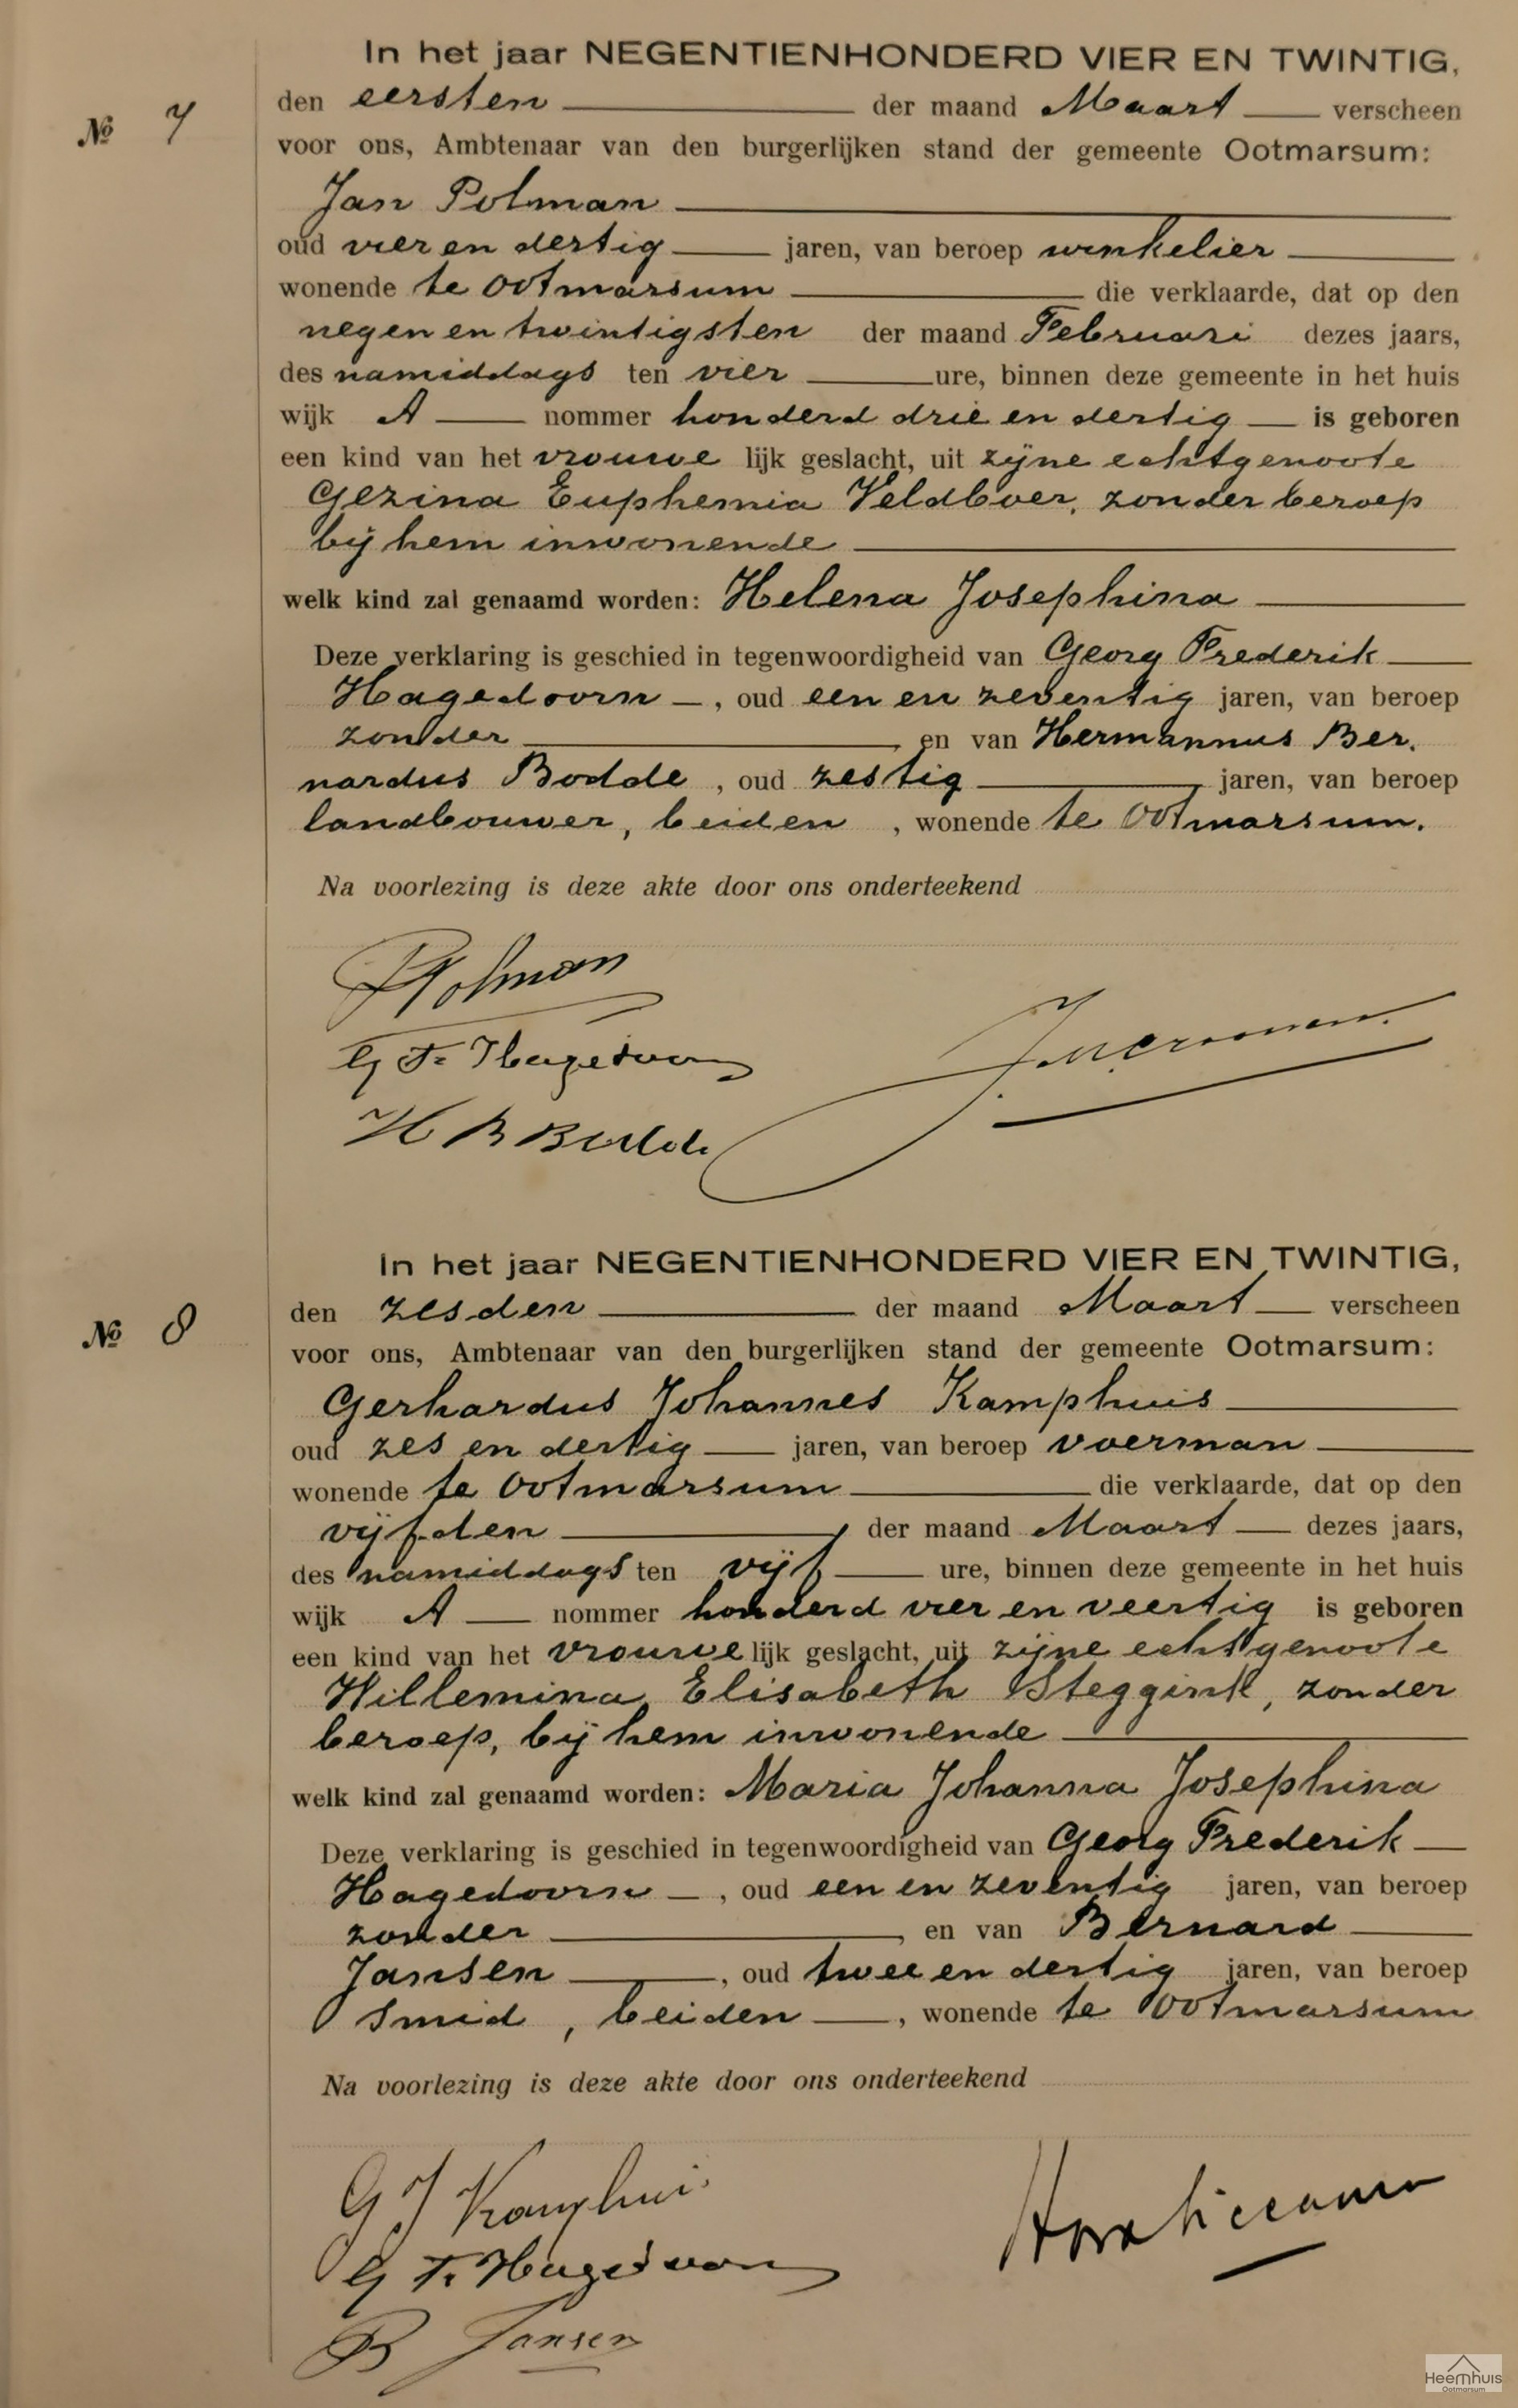 In het jaar NEGENTIENHONDERD VIER EN TWINTIG,
№ 7
den eersten der maand Maart verscheen
voor ons, Ambtenaar van den burgerlijken stand der gemeente Ootmarsum:
Jan Polman
oud vier en dertig jaren, van beroep winkelier
wonende te Ootmarsum die verklaarde, dat op den
negen en twintigsten der maand Februari dezes jaars,
des namiddags ten vier ure, binnen deze gemeente in het huis
wijk A nommer honderd drie en dertig is geboren
een kind van het vrouwe lijk geslacht, uit zijne echtgenoote
Gezina Euphemia Veldboer, zonder beroep
bij hem inwonende
welk kind zal genaamd worden: Helena Josephina
Deze verklaring is geschied in tegenwoordigheid van Georg Frederik
Hagedoorn, oud een en zeventig jaren, van beroep
zonder, en van Hermannus Ber.
nardus Bodde, oud zestig jaren, van beroep
landbouwer, beiden, wonende te Ootmarsum.
Na voorlezing is deze akte door ons onderteekend
JPolman
G F. Hagedoorn
H B Bodde
In het jaar NEGENTIENHONDERD VIER EN TWINTIG,
№ 8
den zesden der maand Maart verscheen
voor ons, Ambtenaar van den burgerlijken stand der gemeente Ootmarsum:
Gerhardus Johannes Kamphuis
oud zes en dertig jaren, van beroep voerman
wonende te Ootmarsum die verklaarde, dat op den
vijfden der maand Maart dezes jaars,
des namiddags ten vijf ure, binnen deze gemeente in het huis
wijk A nommer honderd vier en veertig is geboren
een kind van het vrouwe lijk geslacht, uit zijne echtgenoote
Willemina Elisabeth Steggink, zonder
beroep, bij hem inwonende
welk kind zal genaamd worden: Maria Johanna Josephina
Deze verklaring is geschied in tegenwoordigheid van Georg Frederik
Hagedoorn, oud een en zeventig jaren, van beroep
zonder, en van Bernard
Jansen, oud twee en dertig jaren, van beroep
smid, beiden, wonende te Ootmarsum
Na voorlezing is deze akte door ons onderteekend
G J Kamphuis
G F. Hagedoorn
B Jansen
Heemhuis
Ootmarsum